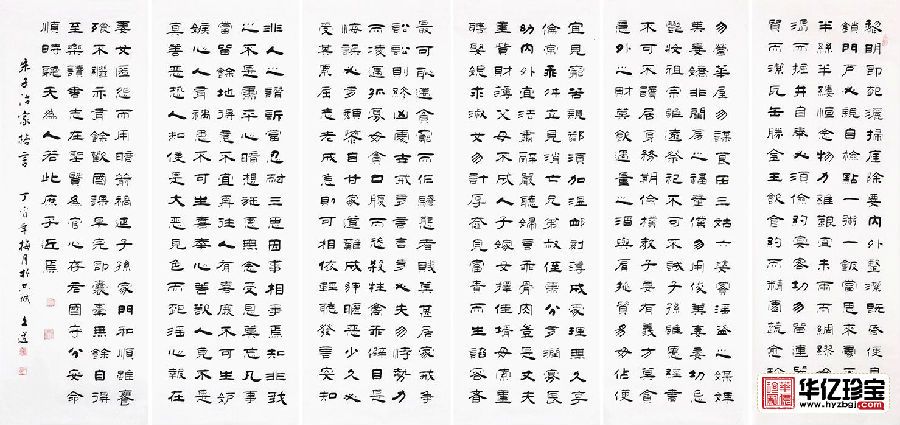 黎明即起灑掃庭除要內外整潔既昏便息關
鎖門戶必親自檢點一粥一飯當思來處不易
半絲半縷恒念物力維艱宜未雨而綢繆毋臨
渴而掘井自奉必須儉約宴客切勿留連器具
質而潔瓦缶勝金玉飲食約而精園蔬愈珍饈
勿營華屋勿謀良田三姑六婆實淫盜之媒婢
美妾嬌非閨房之福童僕勿用俊美妻妾切忌
豔妝祖宗雖遠祭祀不可不誠子孫雖愚經書
不可不讀居身務期儉樸教子要有義方莫貪
意外之財莫飲過量之酒與肩挑貿易勿佔便
宜見窮苦親鄰須加溫卹刻薄成家理無久享
倫常乖舛立見消亡兄弟叔侄須分多潤寡長
幼內外宜法肅辭嚴聽婦言乖骨肉豈是丈夫
重貲財薄父母不成人子嫁女擇佳婿毋索重
聘娶媳求淑女勿計厚奩見富貴而生諂容者
最可恥遇貧窮而作驕態者賤莫甚居家戒爭
訟訟則終凶處世戒多言言多必失勿恃勢力
而凌逼孤寡毋貪口腹而恣殺牲禽乖僻自是
悔誤必多頹惰自甘家道難成狎暱惡少久必
受其累屈志老成急則可相依輕聽發言安知
非人之譖訴當忍耐三思因事相爭焉知非我
之不是須平心暗想施惠無念受恩莫忘凡事
當留餘地得意不宜再往人有喜慶不可生妒
嫉心人有禍患不可生喜幸心善欲人見不是
真善惡恐人知便是大惡見色而起淫心報在
妻女匿怨而用暗箭禍延子孫家門和順雖饔
飧不繼亦有餘歡國課早完即囊橐無餘自得
至樂讀書志在聖賢為官心存君國守分安命
順時聽天為人若此庶乎近焉
朱子治家格言 丁酉年梅月於京城
华亿珍宝
www.hyzbgj.com